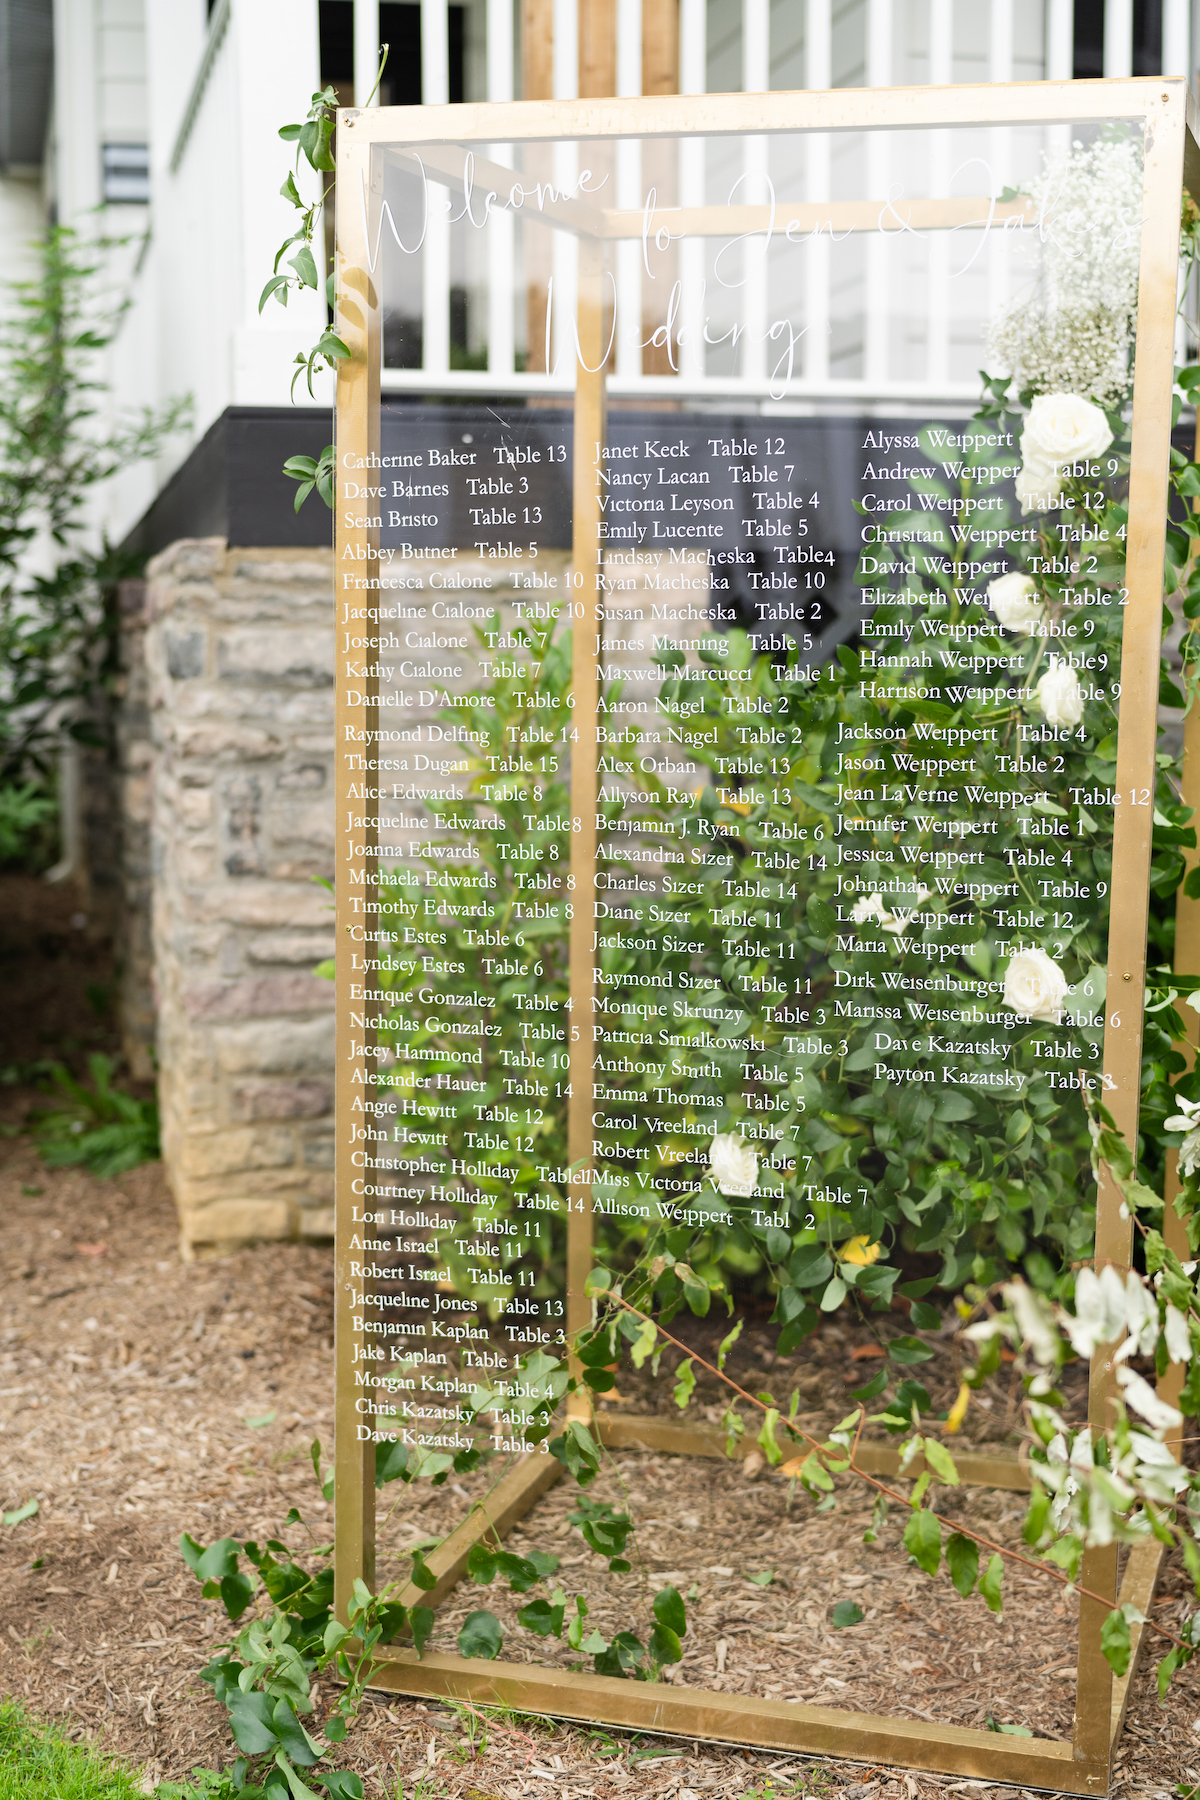 Welcome to Jen & Jake's
Wedding
Catherine Baker Table 13
Dave Barnes Table 3
Sean Bristo Table 13
Abbey Butner Table 5
Francesca Cialone Table 10
Jacqueline Cialone Table 10
Joseph Cialone Table 7
Kathy Cialone Table 7
Danielle D'Amore Table 6
Raymond Delfing Table 14
Theresa Dugan Table 15
Alice Edwards Table 8
Jacqueline Edwards Table8
Joanna Edwards Table 8
Michaela Edwards Table 8
Timothy Edwards Table 8
Curtis Estes Table 6
Lyndsey Estes Table 6
Enrique Gonzalez Table 4
Nicholas Gonzalez Table 5
Jacey Hammond Table 10
Alexander Hauer Table 14
Angie Hewitt Table 12
John Hewitt Table 12
Christopher Holliday
Courtney Holliday Table 14
Lori Holliday Table 11
Anne Israel Table 11
Robert Israel Table 11
Jacqueline Jones Table 13
Benjamin Kaplan Table 3
Jake Kaplan Table 1
Morgan Kaplan Table 4
Chris Kazatsky Table 3
Dave Kazatsky Table 3
Janet Keck Table 12
Nancy Lacan Table 7
Victoria Leyson Table 4
Emily Lucente Table 5
Lindsay Macheska Table4
Ryan Macheska Table 10
Susan Macheska Table 2
James Manning Table 5
Maxwell Marcucci Table 1
Aaron Nagel Table 2
Barbara Nagel Table 2
Alex Orban Table 13
Allyson Ray Table 13
Benjamin J. Ryan Table 6
Alexandria Sizer Table 14
Charles Sizer Table 14
Diane Sizer Table 11
Jackson Sizer Table 11
Raymond Sizer Table 11
Monique Skrunzy Table 3
Patricia Smialkowski Table 3
Anthony Smith Table 5
Emma Thomas Table 5
Carol Vreeland Table 7
Robert Vreeland Table 7
Miss Victoria Vreeland Table 7
Allison Weippert Tabl 2
Alyssa Weippert
Andrew Weipper Table 9
Carol Weippert Table 12
Chrisitan Weippert Table 4
David Weippert Table 2
Elizabeth Weippert Table 2
Emily Weippert - Table 9
Hannah Weippert Table9
Harrison Weippert Table 9
Jackson Weippert Table 4
Jason Weippert Table 2
Jean LaVerne Weippert Table 12
Jennifer Weippert Table 1
Jessica Weippert Table 4
Johnathan Weippert Table 9
Larry Weippert Table 12
Maria Weippert Table 2
Dirk Weisenburger Table 6
Marissa Weisenburger Table 6
Dave Kazatsky Table 3
Payton Kazatsky Table 3